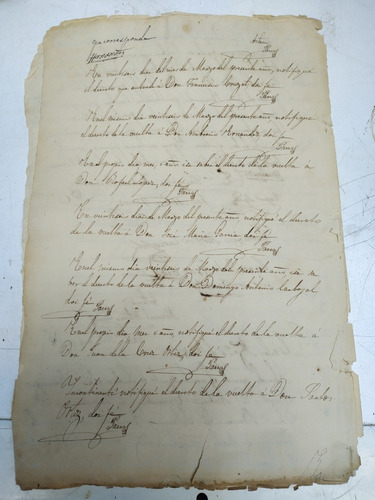 qe corresponda
En veintiseis dias del mes de Marzo del presente año, notifiqué
el decreto que antecede à Don Francisco Gonzal. doi fe
En el mismo dia veintiseis de Marzo del presente año, notifiqué
el decreto de la vuelta à Don Antonio Fernandez, doi fe
En el propio dia mes i año ice saber el decreto de la vuelta à
Don Rafael Lopez, doi fe
En veintiseis dias de Marzo del presente año notifiqué el decreto
de la vuelta à Don José Maria Garcia doi fe
En el mismo dia veintiseis de Marzo del presente año ice sa
ber el decreto de la vuelta à Don Domingo Antonio Carbajal
doi fe
En el propio dia mes i año, notifiqué el decreto de la vuelta à
Don Juan de la Cruz Ortiz, doi fe
Y incontinente notifiqué el decreto de la vuelta à Don Pablo
Ortiz, doi fe